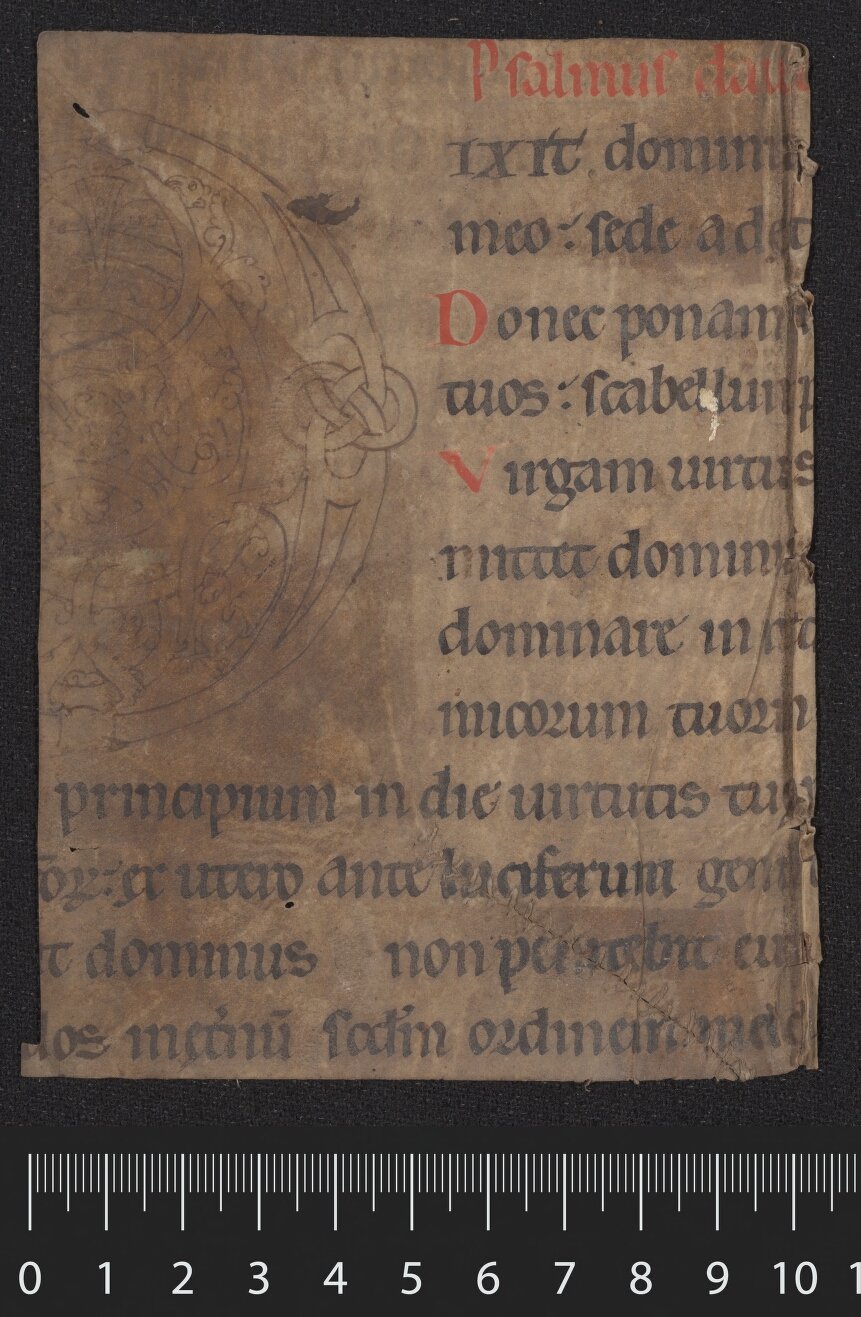 Psalmus daui
IXIT dominu
meo : sede a det
Donec ponam
tuos : scabellum p
Virgam uirtus
mittet domin
dominare in
micorum tuorum
principium in die uirtutis tu
oꝝ : ex utero ante luciferum gen
t dominus non penitebit eu
dos in etnū scdm ordinem melc
0 1 2 3 4 5 6 7 8 9 10 1